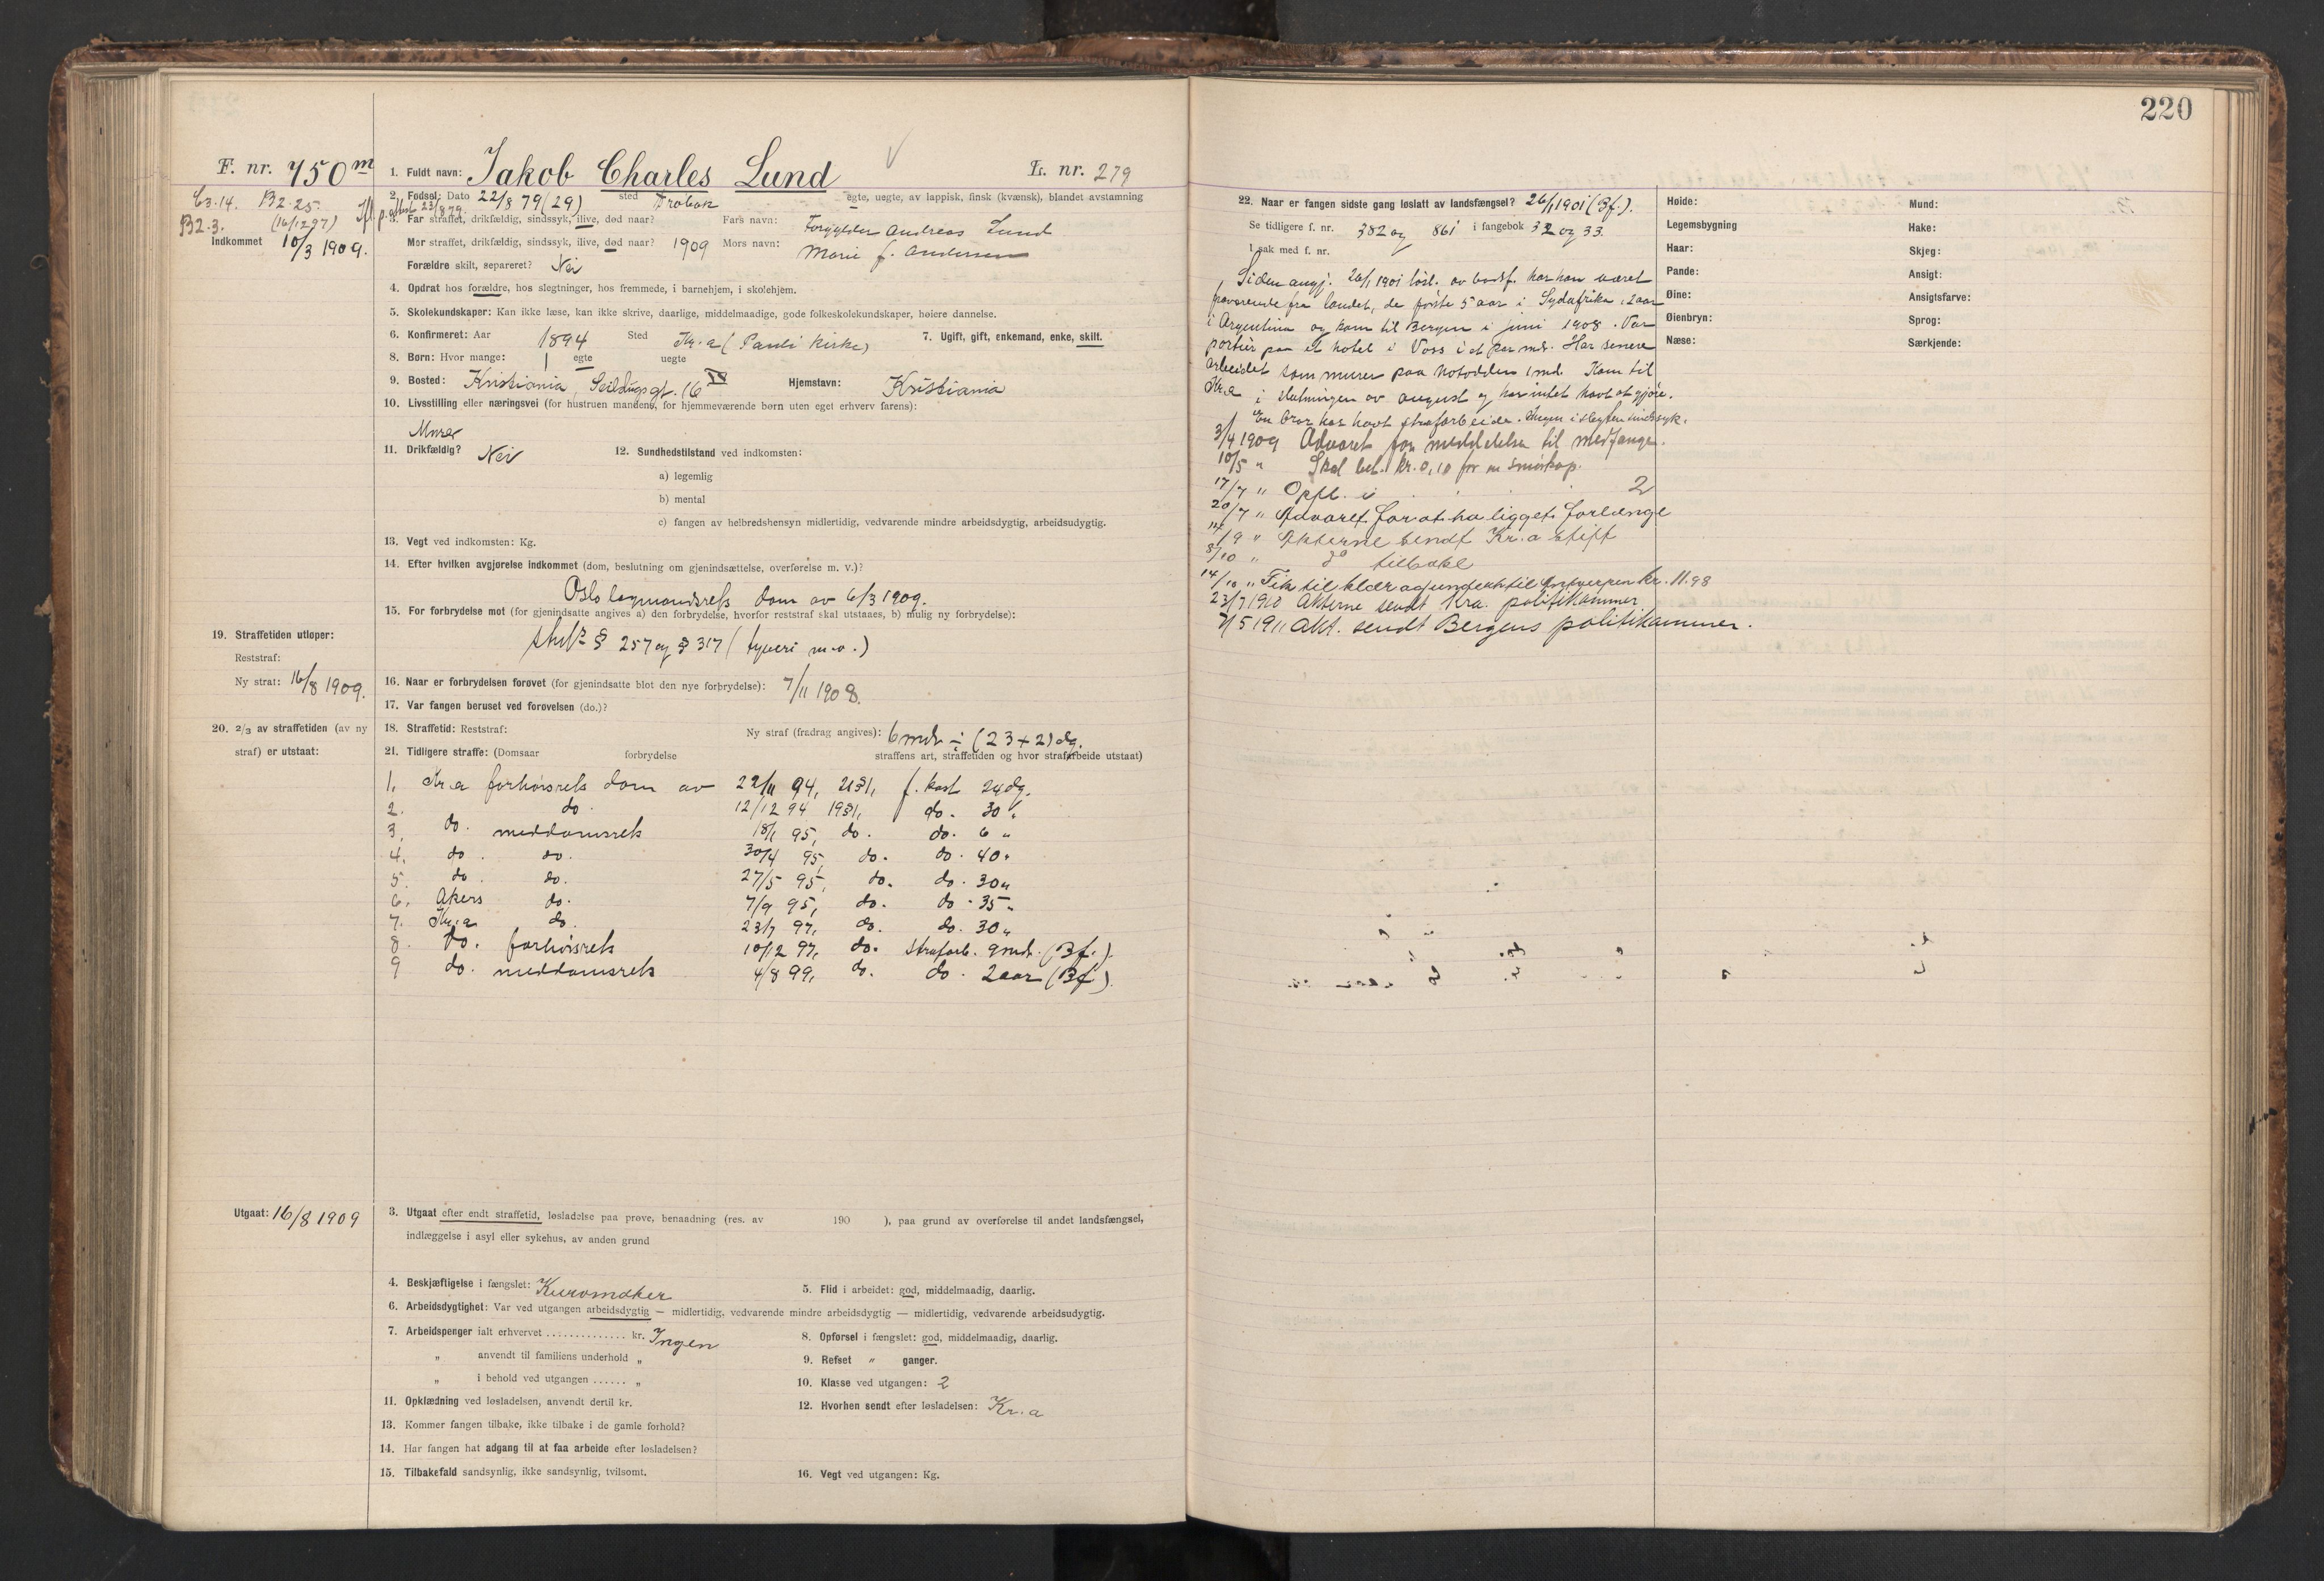 220
F. nr. 750 m
1. Fuldt navn: Jakob Charles Lund
L. nr. 279
C3.14. B2.25.
B2.3. (16/12 97)
2. Fødsel: Dato 22/8 79 (29) sted Drøbak egte, uegte, av lappisk, finsk (kvænsk), blandet avstamning
Ifl. p. attest 23/8 79.
3. Far straffet, drikfældig, sindssyk, ilive, død naar? Fars navn: Forgylder Andreas Lund
Indkommet 10/3 1909.
Mor straffet, drikfældig, sindssyk, ilive, død naar? 1909 Mors navn: Marie f. Andersen
Forældre skilt, separeret? Nei
4. Opdrat hos forældre, hos slegtninger, hos fremmede, i barnehjem, i skolehjem.
5. Skolekundskaper: Kan ikke læse, kan ikke skrive, daarlige, middelmaadige, gode folkeskolekundskaper, høiere dannelse.
6. Konfirmeret: Aar 1894 Sted Kr.a (Pauli kirke) 7. Ugift, gift, enkemand, enke, skilt.
8. Børn: Hvor mange: 1 egte uegte
9. Bosted: Kristiania, Seildugsgt. 16 IV Hjemstavn: Kristiania
10. Livsstilling eller næringsvei (for hustruen mandens, for hjemmeværende børn uten eget erhverv farens):
Murer
11. Drikfældig? Nei 12. Sundhedstilstand ved indkomsten:
a) legemlig
b) mental
c) fangen av helbredshensyn midlertidig, vedvarende mindre arbeidsdygtig, arbeidsudygtig.
13. Vegt ved indkomsten: Kg.
14. Efter hvilken avgjørelse indkommet (dom, beslutning om gjenindsættelse, overførelse m. v.)?
Oslo lagmandsrets dom av 6/3 1909.
15. For forbrydelse mot (for gjenindsatte angives a) den forbrydelse, hvorfor reststraf skal utstaaes, b) mulig ny forbrydelse):
19. Straffetiden utløper:
strfl. § 257 og § 317 (tyveri m.v.)
Reststraf:
Ny straf: 16/8 1909.
16. Naar er forbrydelsen forøvet (for gjenindsatte blot den nye forbrydelse): 7/11 1908.
17. Var fangen beruset ved forøvelsen (do.)?
20. 2/3 av straffetiden (av ny straf) er utstaat:
18. Straffetid: Reststraf: Ny straf (fradrag angives): 6 mdr ÷ (23 + 2) dg.
21. Tidligere straffe: (Domsaar forbrydelse straffens art, straffetiden og hvor strafarbeide utstaat)
1. Kr.a forhørsrets dom av 22/11 94, f. kost 24 dg.
2. do. 12/12 94 do. 30 "
3. do. meddomsrets 18/1 95, do. do. 6 "
4. do. do. 30/4 95, do. do. 40 "
5. do. do. 27/5 95, do. do. 30 "
6. Akers do. 7/9 95, do. do. 35 "
7. Kr.a do. 23/7 97, do. do. 30 "
8. do. forhørsrets 10/12 97, do. strafarb. 9 mdr. (Bf.).
9 do. meddomsrets 4/8 99, do. do. 2 aar (Bf).
Utgaat: 16/8 1909
3. Utgaat efter endt straffetid, løsladelse paa prøve, benaadning (res. av 190 ), paa grund av overførelse til andet landsfængsel,
indlæggelse i asyl eller sykehus, av anden grund
4. Beskjæftigelse i fængslet: Kurvmaker 5. Flid i arbeidet: god, middelmaadig, daarlig.
6. Arbeidsdygtighet: Var ved utgangen arbeidsdygtig — midlertidig, vedvarende mindre arbeidsdygtig — midlertidig, vedvarende arbeidsudygtig.
7. Arbeidspenger ialt erhvervet .............. kr. Ingen 8. Opførsel i fængslet: god, middelmaadig, daarlig.
„ anvendt til familiens underhold „ 9. Refset " ganger.
„ i behold ved utgangen ...... „ 10. Klasse ved utgangen: 2
11. Opklædning ved løsladelsen, anvendt dertil kr. 12. Hvorhen sendt efter løsladelsen: Kr.a
13. Kommer fangen tilbake, ikke tilbake i de gamle forhold?
14. Har fangen hat adgang til at faa arbeide efter løsladelsen?
15. Tilbakefald sandsynlig, ikke sandsynlig, tvilsomt. 16. Vegt ved utgangen: Kg.
22. Naar er fangen sidste gang løslatt av landsfængsel? 26/1 1901 (Bf.).
Se tidligere f. nr. 382 og 861 i fangebok 32 og 33.
I sak med f. nr.
Siden angj. 26/1 1901 løsl. av bodsf. har han været
fraværende fra landet, de første 5 aar i Sydafrika, 2 aar
i Argentina og kom til Bergen i juni 1908. Var
portier paa et hotel i Voss i et par mdr. Har senere
arbeidet som murer paa Notodden 1 md. Kom til
Kr.a i slutningen av august og har intet havt at gjøre.
En bror har havt strafarbeide. Ingen i slegten sindssyk.
3/4 1909 Advaret for meddelelse til medfange.
10/5 " Skal bet. kr. 0,10 for en smørkop.
17/7 " Opfl. i 2
20/7 " Advaret for at ha ligget forlænge
/9 " Akterne sendt Kr.a stift
8/10 " do tilbake
14/10 " Fik til klær og underh til Antwerpen kr. 11.98
23/7 1910 Akterne sendt Kra. politikammer
7/5 1911 Akt. sendt Bergens politikammer.
Høide:
Legemsbygning
Haar:
Pande:
Øine:
Øienbryn:
Næse:
Mund:
Hake:
Skjeg:
Ansigt:
Ansigtsfarve:
Sprog:
Særkjende: